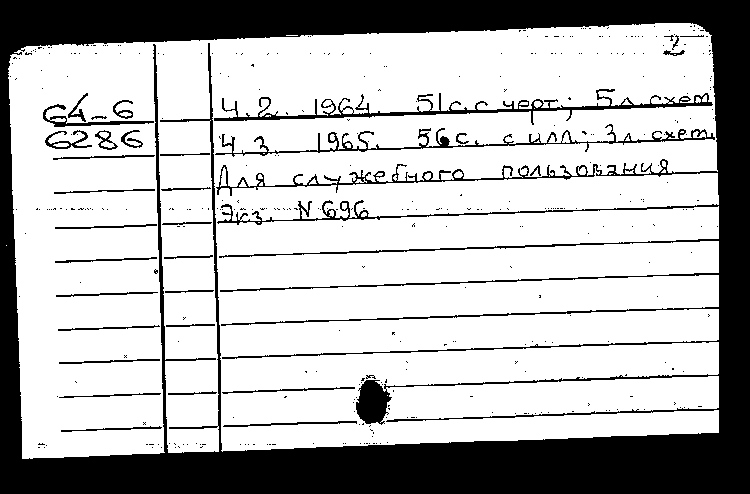 2
64-6
6286
Ч.2. 1964. 51с.с черт.; 5 л. схем
Ч.3. 1965. 56с. с илл.; 3л. схем.
Для служебного пользования
Экз. N 696.